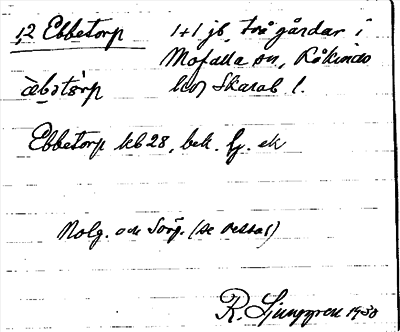 1,2 Ebbetorp 1+1 jb, två gårdar i
Mofalla sn, Kåkinds
æbətsrp hd Skarab l.
Ebbetorp kb 28, bek. lj. ek
Nolg. och Sörg. (se dessa)
R. Ljunggren 1930